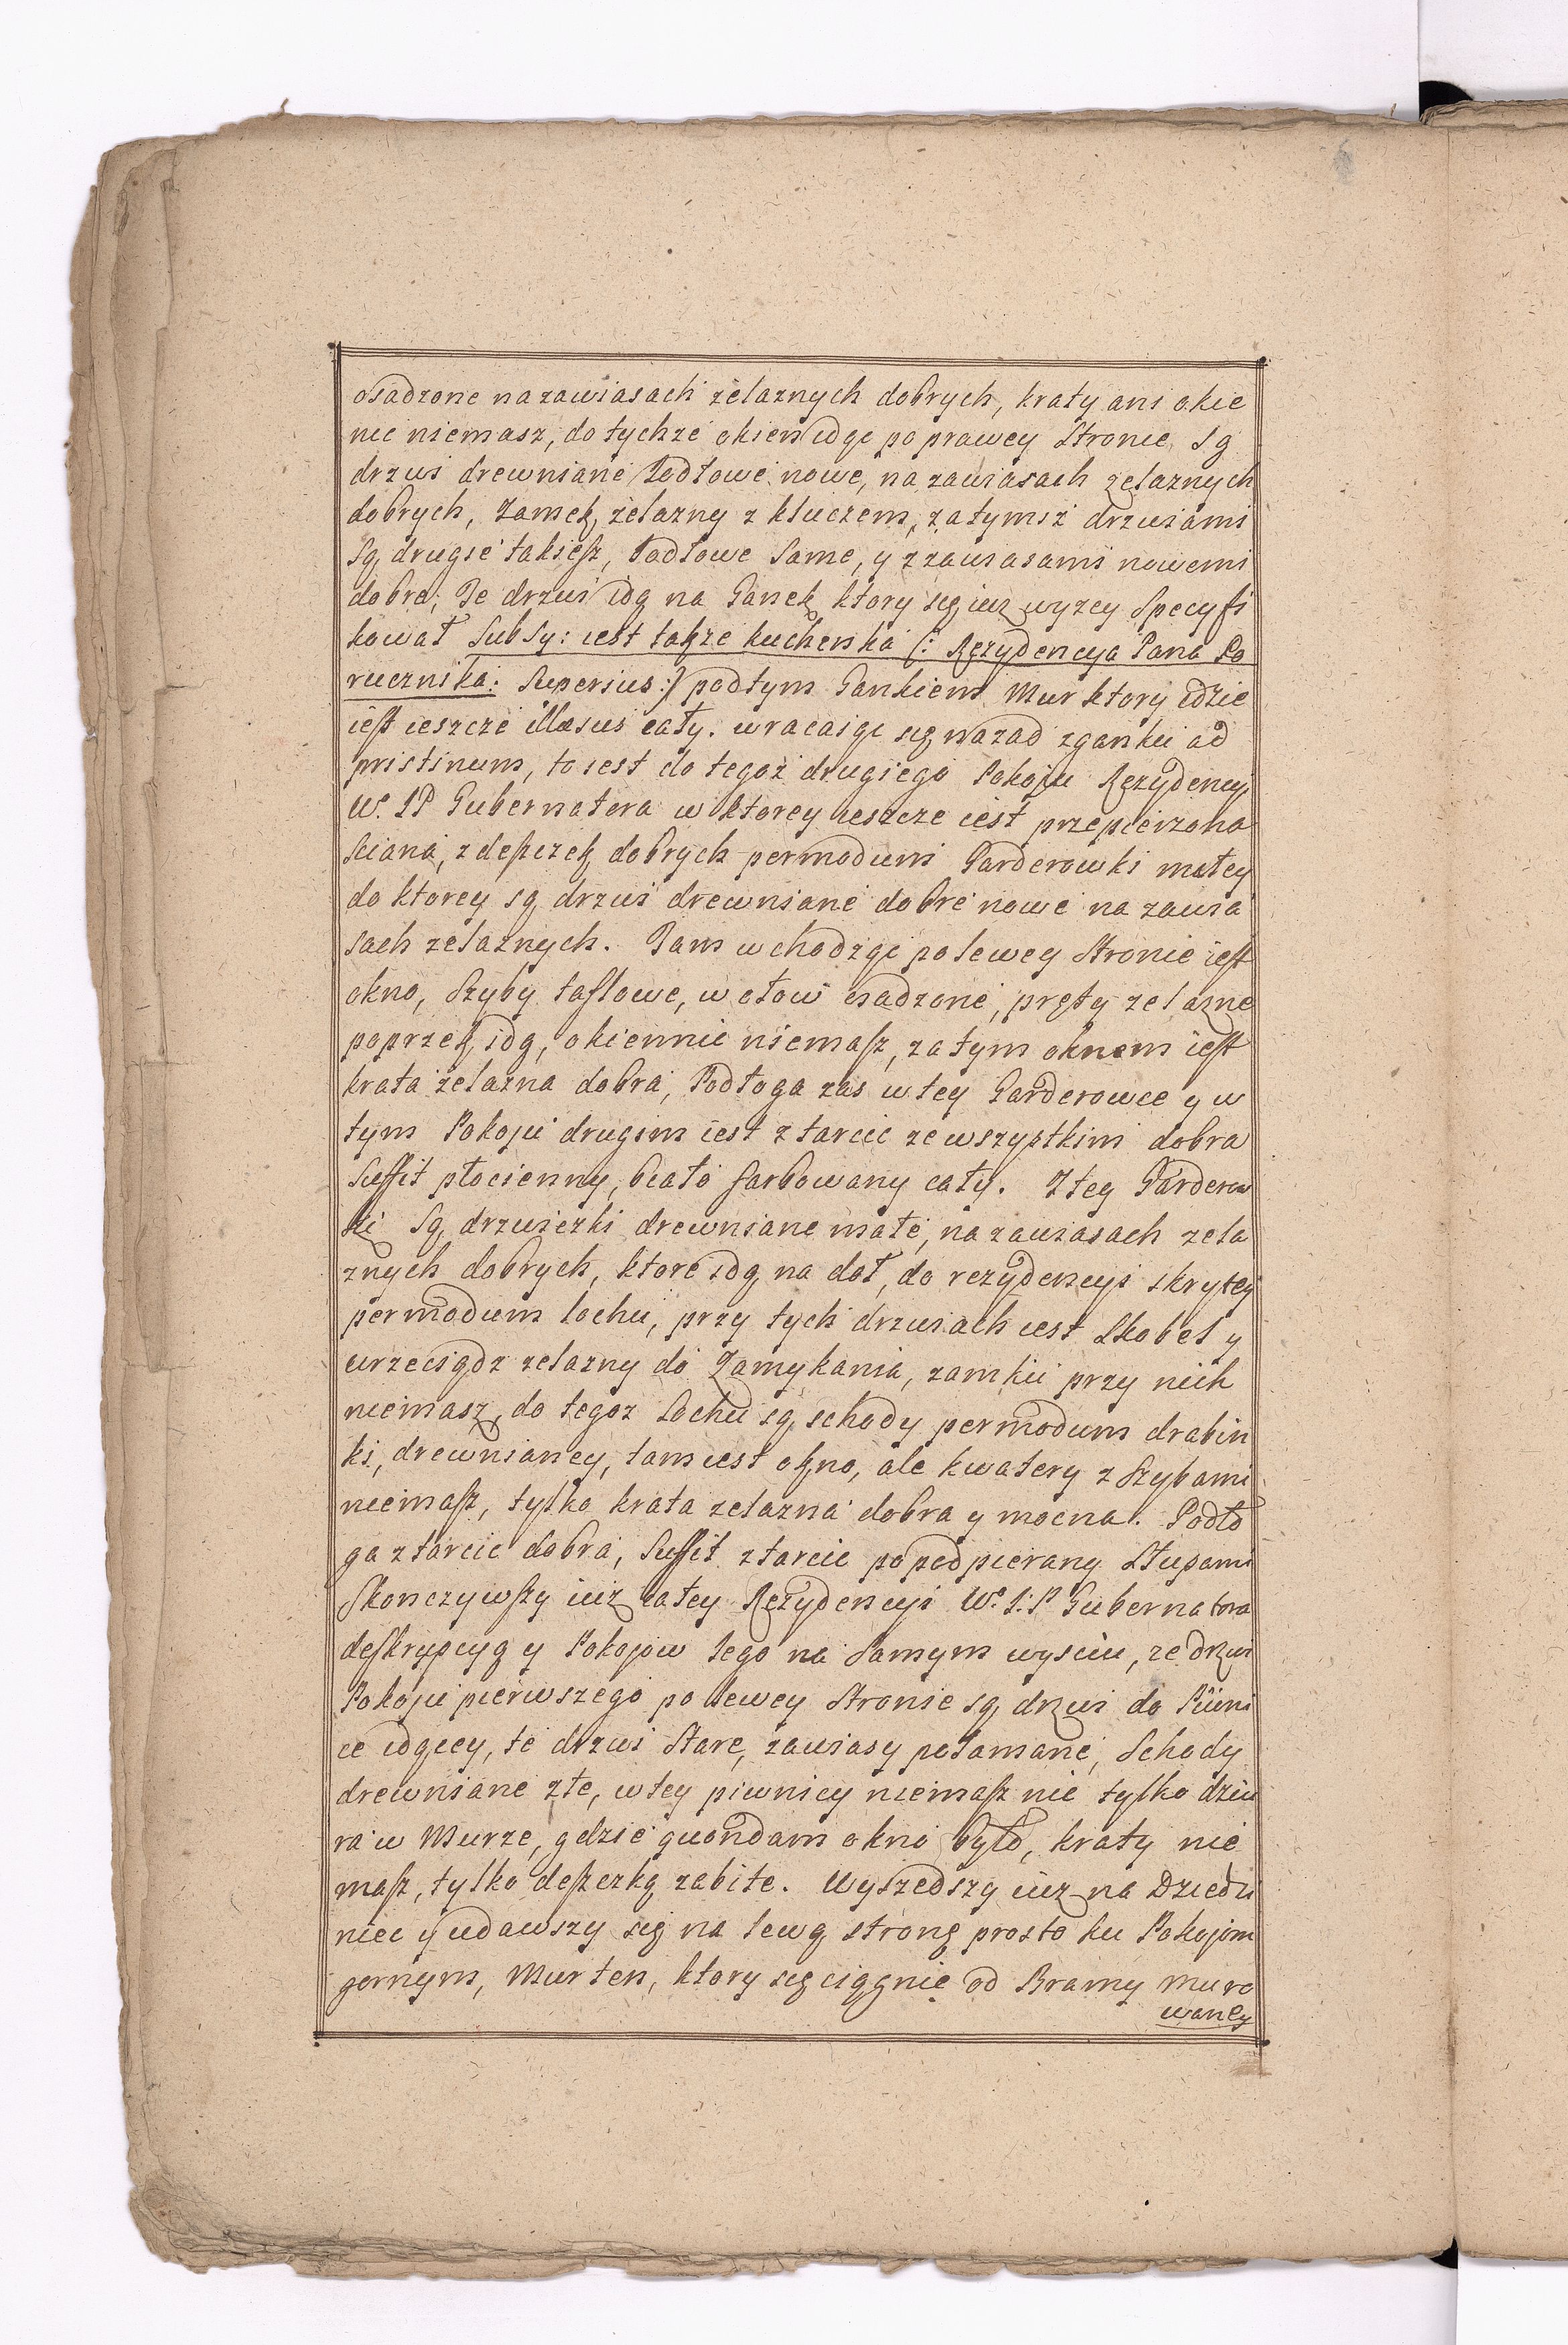 osadzone na zawiasach żelaznych dobrych, kraty ani okie
nic niemasz, do tychże okien idąc po prawey Stronie są
drzwi drewniane Jodłowe nowe, na zawiasach zelaznych
dobrych, Zamek żelazny z kluczem, za tymiż drzwiami
są drugie takiesz, Jodłowe same, y z zawiasami nowemi
dobre; Te drzwi idą na Ganek ktory się iuz wyzey Specyfi
kował SubSy: iest także kuchenka (: Rezydencya Pana Po
rucznika: Superius:) pod tym Gankiem Mur ktory idzie
iest ieszcze illæsus cały. wracaiąc się nazad z ganku ad
pristinum, to iest do tegoż drugiego Pokoju Rezydencyi
W. JP Gubernatora w ktorey ieszcze iest przepierzona
sciana, z deszczek dobrych per modum Garderowki małey
do ktorey są drzwi drewniane dobre nowe na zawia
sach zelaznych. Tam wchodząc po lewey Stronie iest
okno, Szyby taflowe, w ołow osadzone, pręty zelazne
poprzek idą, okiennic niemasz, za tym oknem iest
krata żelazna dobra, Podłoga zas w tey Garderowce y w
tym Pokoju drugim iest z tarcic ze wszystkim dobra
Suffit płocienny, biało farbowany cały. Z tey Garderow
ki są drzwiczki drewniane małe, na zawiasach zela
znych dobrych, ktore idą na doł, do rezydencyi skrytey
per modum lochu, przy tych drzwiach iest Skobel y
wrzeciądz zelazny do Zamykania, zamku przy nich
niemasz, do tegoz Lochu są schody per modum drabin
ki, drewnianey, tam iest okno, ale kwatery z Szybami
niemasz, tylko krata zelazna dobra y mocna. Podło
ga z tarcic dobra, Suffit z tarcic popodpierany Słupami
Skonczywszy iuz całey Rezydencyi W. J:P Gubernatora
deskrypcyą y Pokojow Jego na samym wysciu, ze drzwi
Pokoju pierwszego po lewey Stronie są drzwi do Piwni
ce idącey, te drzwi Stare, zawiasy połamane, Schody
drewniane złe, w tey piwnicy niemasz nic tylko dziu
ra w Murze, gdzie quondam okno było, kraty nie
masz, tylko deszczką zabite. Wyszedszy iuz na Dziedzi
niec y udawszy się na lewą stronę prosto ku Pokojom
gornym, Mur ten, ktory się ciągnie od Bramy muro
waney